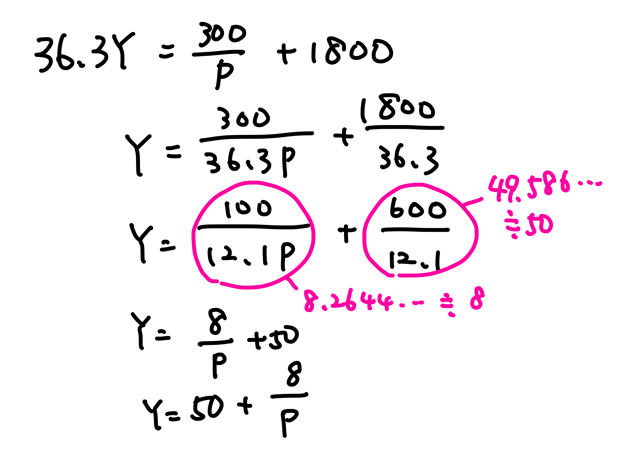 36.3Y = 300/P + 1800
Y = 300/36.3P + 1800/36.3
Y = 100/12.1P + 600/12.1
49.586...
≒50
8.2644... ≒ 8
Y = 8/P + 50
Y = 50 + 8/P